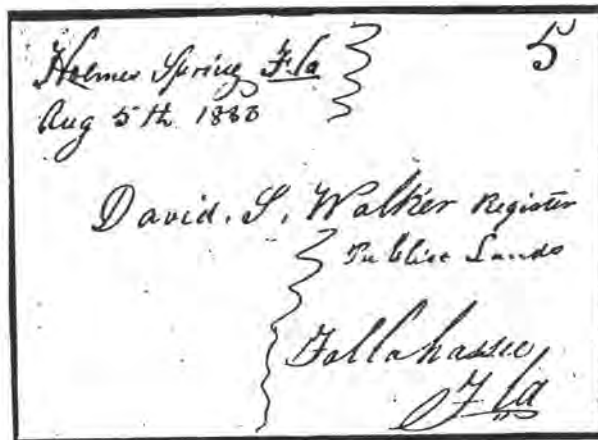 Holmes Spring Fla
5
Aug 5th
David. S. Walker Register
Public Lands
Tallahassee
Fla